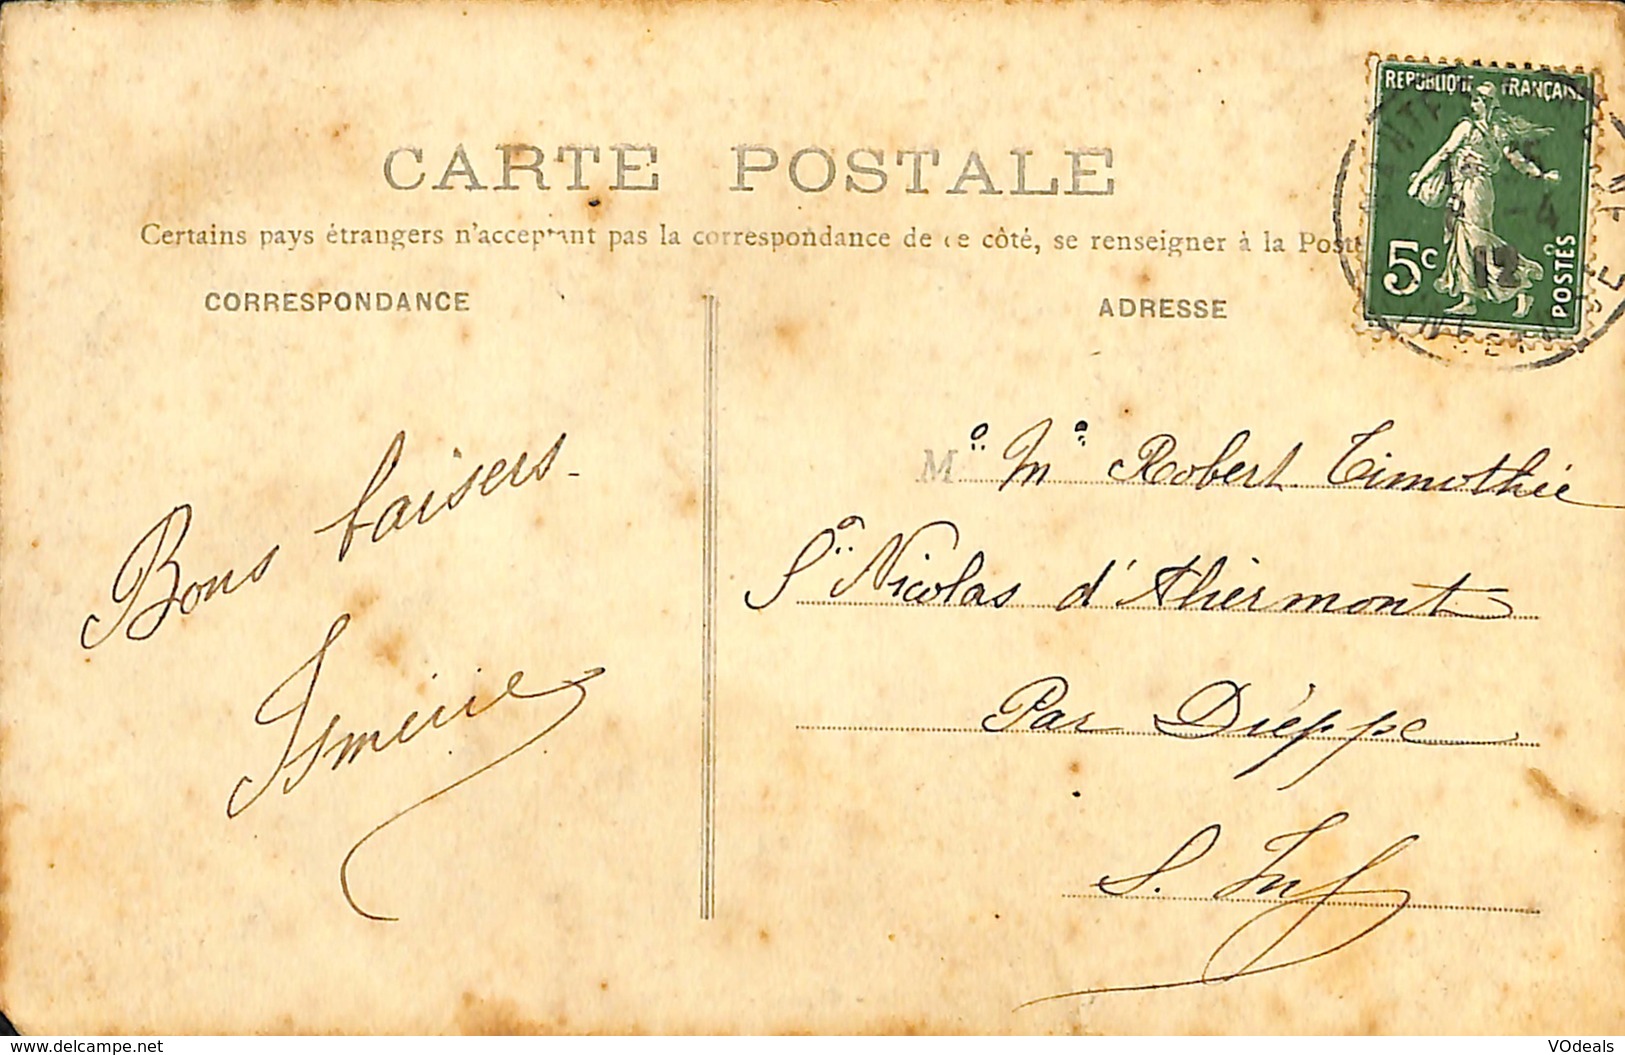 CARTE POSTALE
Certains pays étrangers n'acceptant pas la correspondance de ce côté, se renseigner à la Poste
CORRESPONDANCE
ADRESSE
REPUBLIQUE FRANÇAISE
5c
POSTES
-4
12
Bons baisers.
Ismérie
M. Mr Robert Timothée
St Nicolas d'Aliermont
Par Dieppe
S. Inf
www.delcampe.net
VOdeals